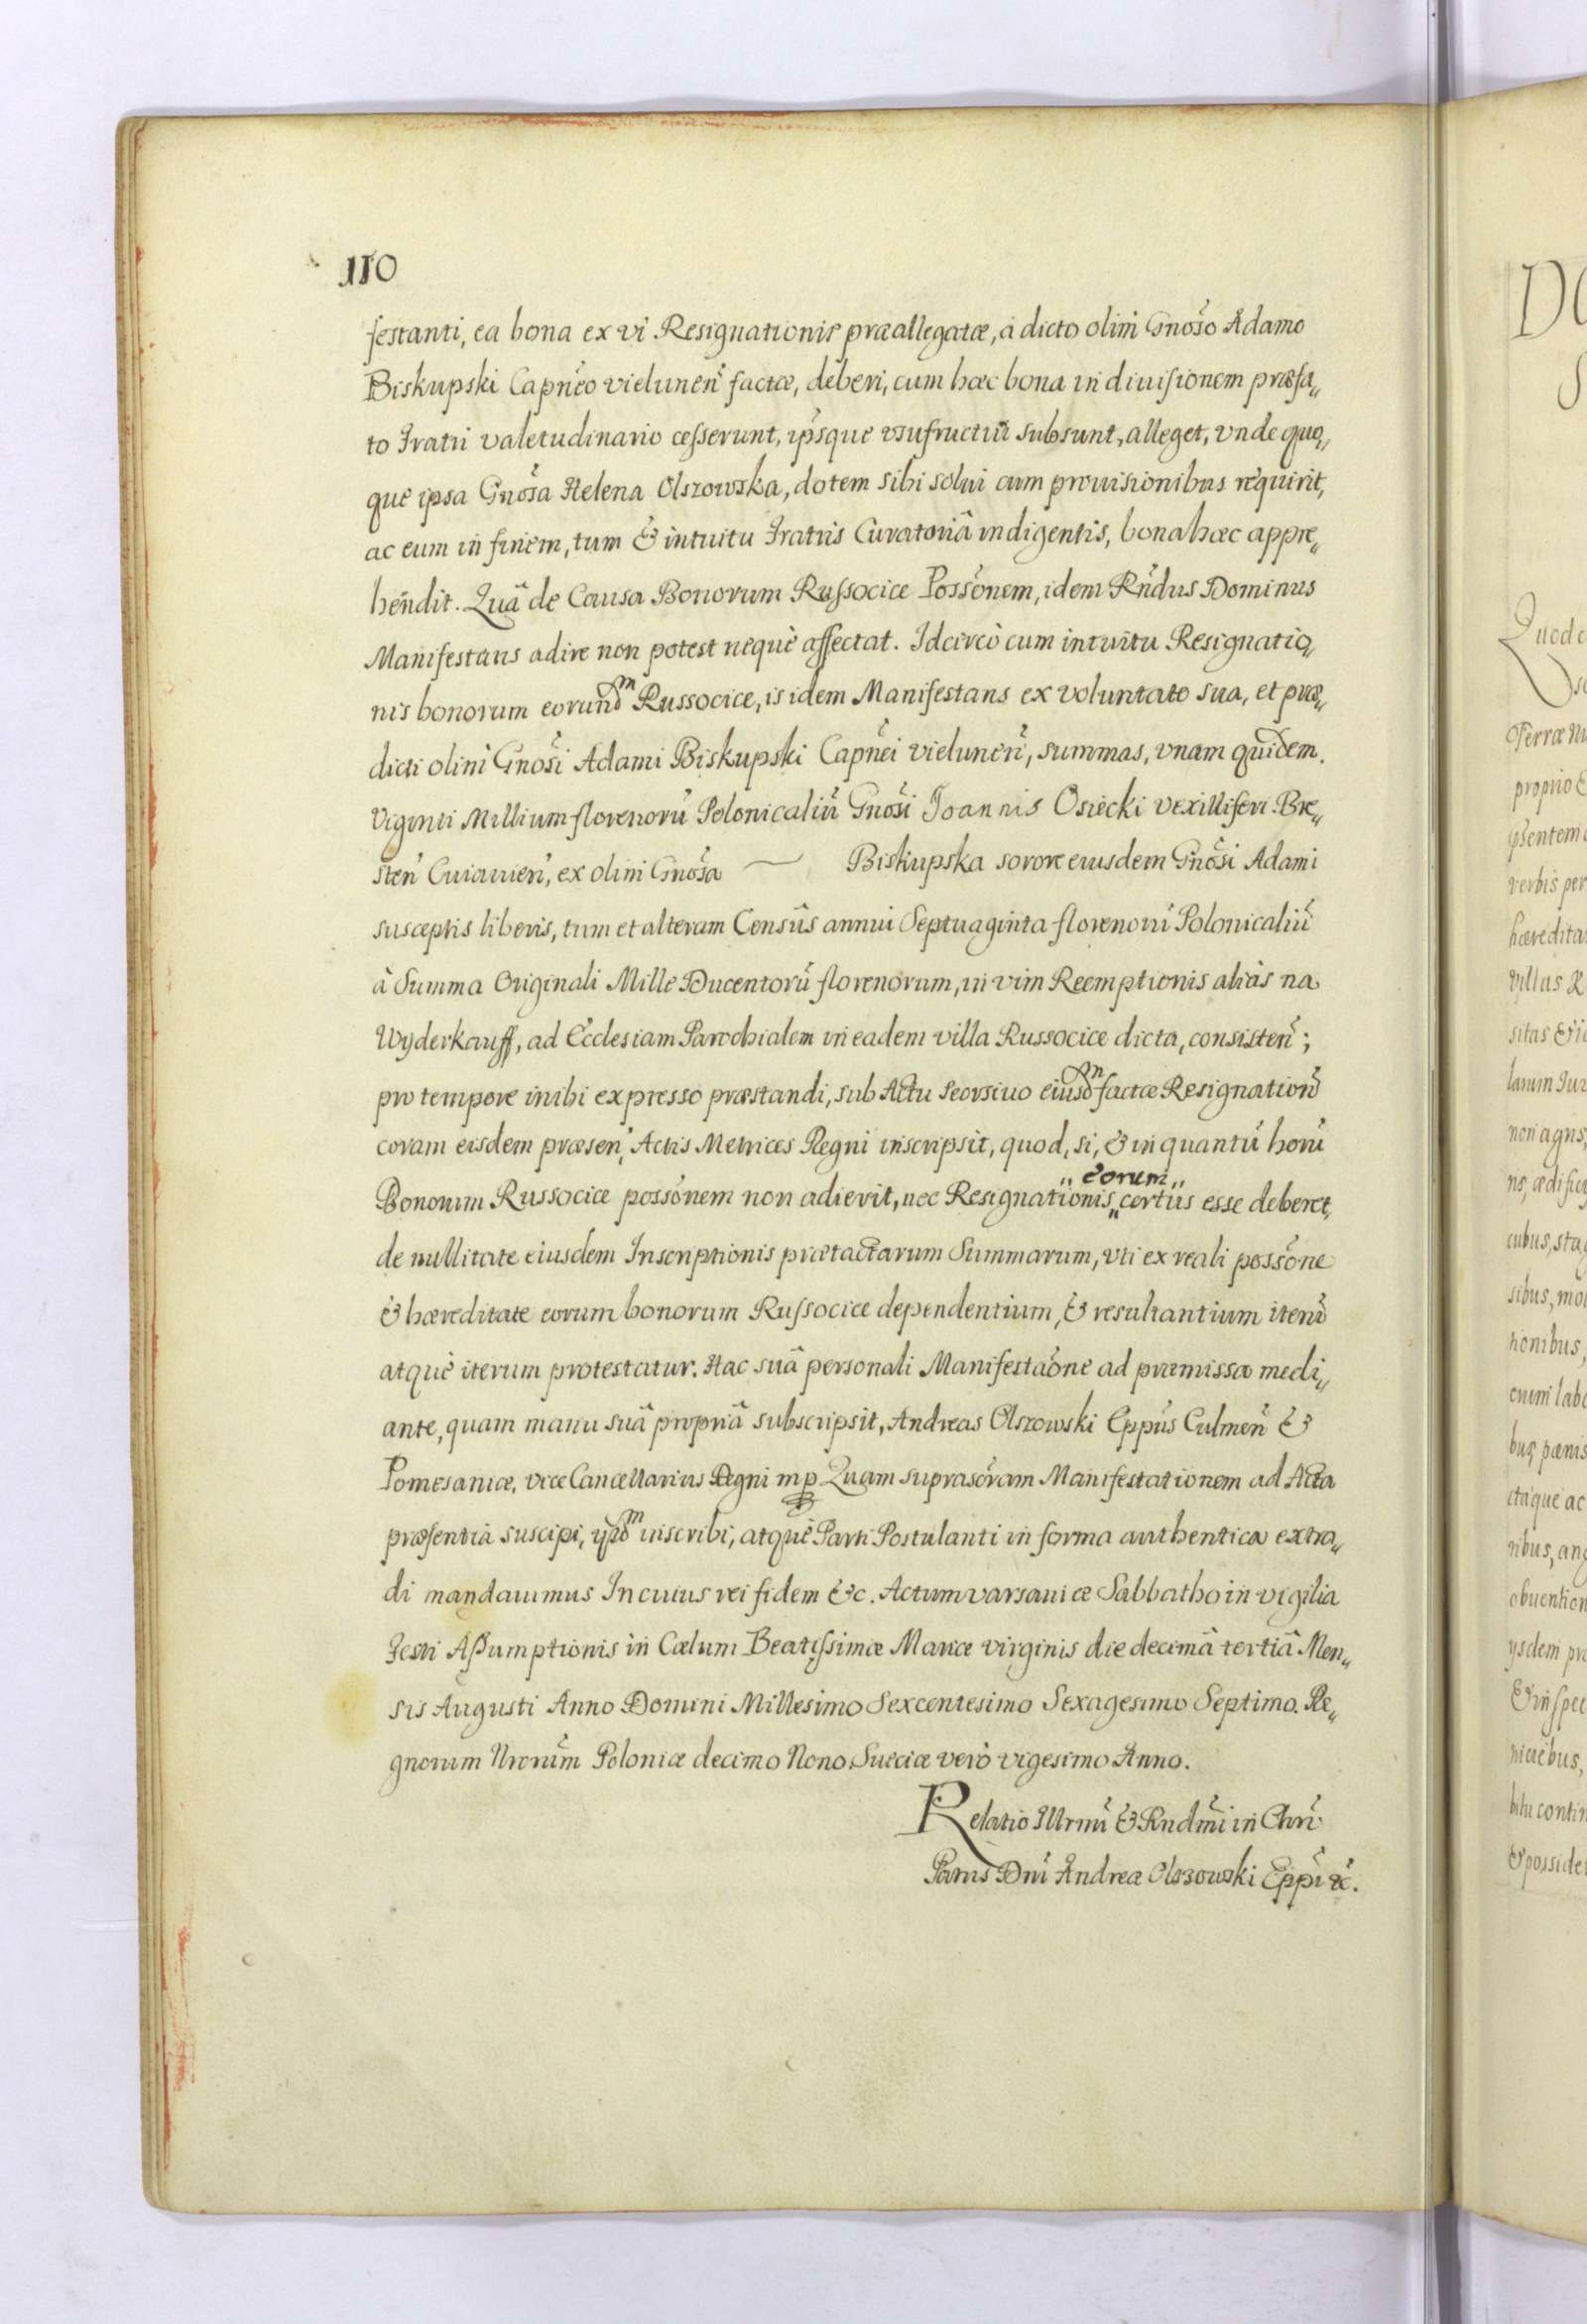 110
festanti, ea bona ex vi Resignationis præallegatæ, á dicto olim Gnoso Adamo
Biskupski Capneo vielunen factæ, deberi, cum hæc bona in diuisionem præfa„
to Fratri valetudinario cesserunt, ipsque vsufructui subsunt, alleget, vnde quo„
que ipsa Gnosa Helena Olszowska, dotem sibi solui cum prouisionibus requirit,
ac eum in finem, tum & intuitu Fratris Curatoriâ indigentis, bona hæc appre„
hendit. Quâ de Causa Bonorum Russocice Possonem, idem Rndus Dominus
Manifestans adire non potest neque affectat. Idcircò cum intuitu Resignatio„
nis bonorum eorundm Russocice, is idem Manifestans ex voluntate sua, et præ„
dicti olim Gnosi Adami Biskupski Capnei vielunen, summas, vnam quidem.
Viginti Millium florenorũ Polonicaliũ Gnosi Joannis Osiecki vexilliferi Bre„
sten Cuiauien, ex olim Gnosa — Biskupska sorore eiusdem Gnosi Adami
susceptis liberis, tum et alteram Censûs annui Septuaginta florenorũ Polonicaliũ
à Summa Originali Mille Ducentorũ florenorum, in vim Reemptionis aliàs na
Wyderkauff, ad Ecclesiam Parochialem in eadem villa Russocice dicta, consisten;
pro tempore inibi expresso præstandi, sub Actu seorsiuo eiusdm factæ Resignation
coram eisdem præsen, Actis Metrices Regni inscripsit, quod, si, & in quantũ horũ
Bonorum Russocice possonem non adierit, nec Resignationis „eorum„ certus esse deberet,
de nullitate eiusdem Inscriptionis prætactarum Summarum, vti ex reali possone
& hæreditate eorum bonorum Russocice dependentium, & resultantium iterũ
atque iterum protestatur. Hac suâ personali Manifestaone ad præmissa medi„
ante, quam manu suâ propriâ subscripsit, Andreas Olszowski Eppus Culmen &
Pomesaniæ, vice Cancellarius Regni mp Quam suprascram Manifestationem ad Acta
præsentia suscipi, ijsdm inscribi, atque Parti Postulanti in forma authentica extra„
di mandauimus In cuius rei fidem &c. Actum varsauiæ Sabbatho in vigilia
Festi Assumptionis in Cælum Beatissimæ Mariæ virginis die decimâ tertiâ Men„
sis Augusti Anno Domini Millesimo Sexcentesimo Sexagesimo Septimo. Re„
gnorum Nrorum Poloniæ decimo Nono Sueciæ verò vigesimo Anno.
Relatio Illrmi & Rndmi in Chri
Patris Dni Andreæ Olszowski Eppi &c.